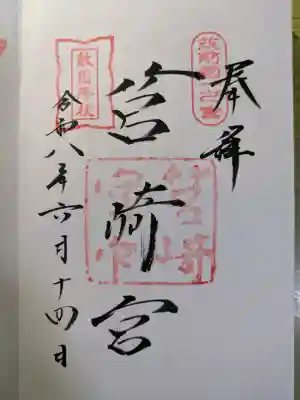 奉拝
筑前國一之宮
筥崎宮
敵國降伏
令和八年六月十四日